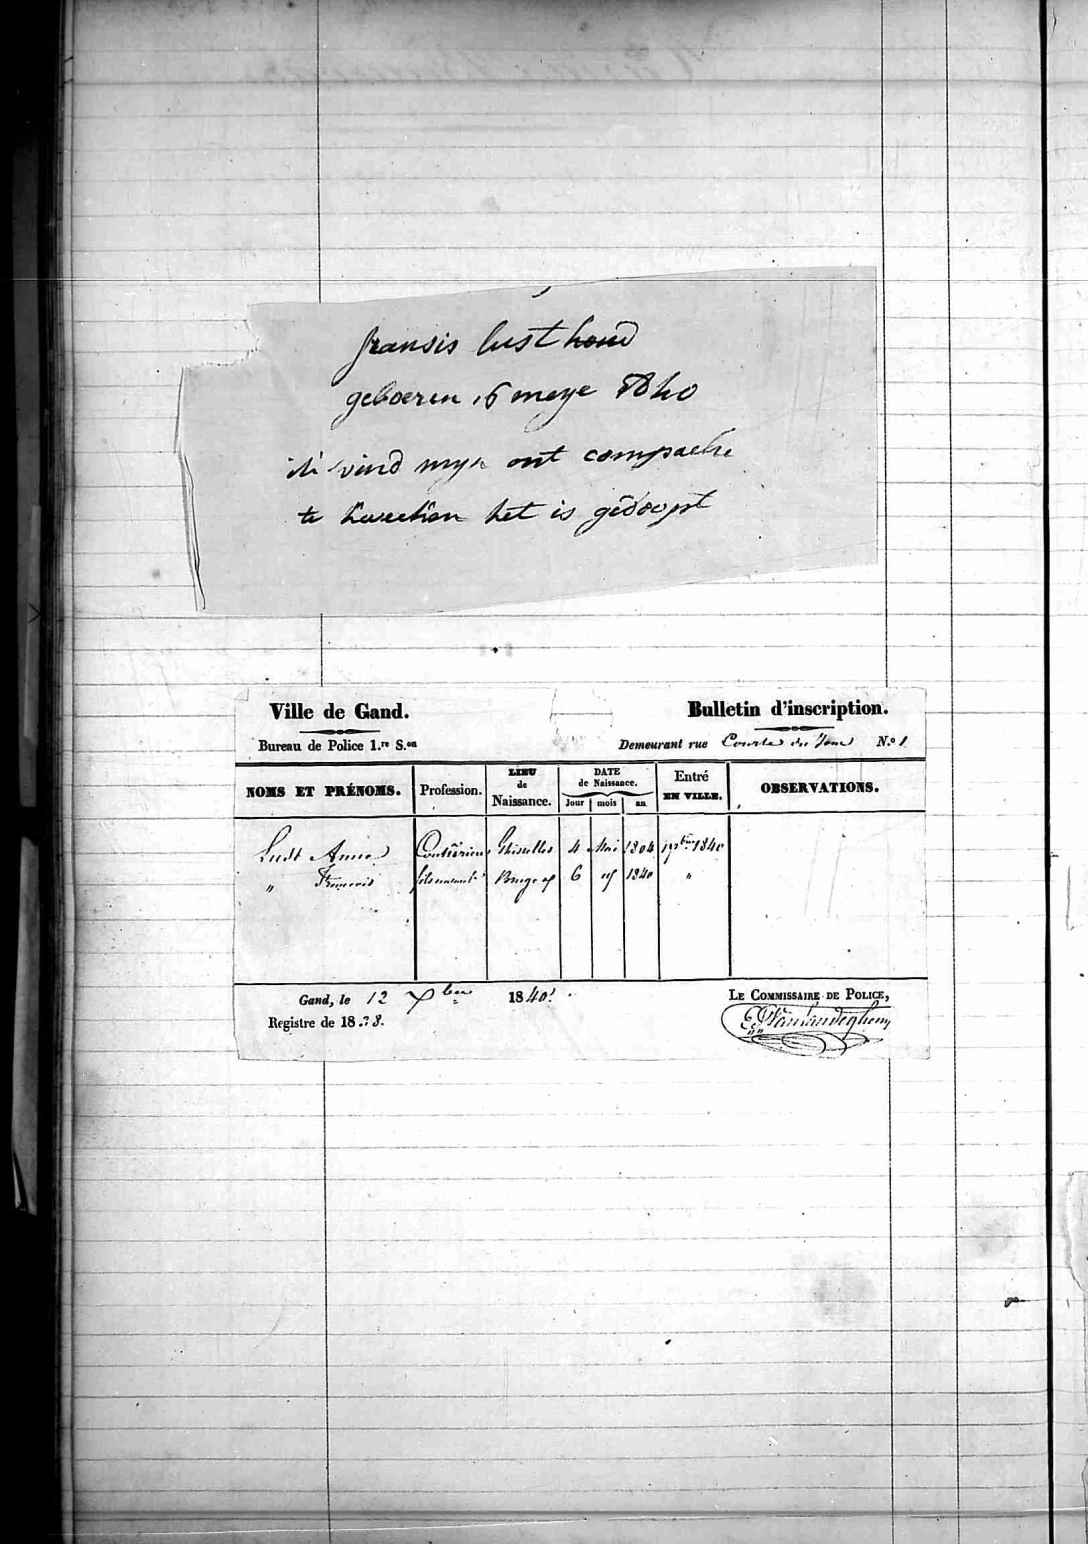 fransis lust houd
geboeren 6 meye 1840
vind myn ont compaehe
te het is gedoopt
Ville de Gand.
Bulletin d'inscription.
Bureau de Police 1.re S.on
Demeurant rue Courte du Jour N.o 1
NOMS ET PRÉNOMS. Profession. LIEU de Naissance. DATE de Naissance. Jour mois an Entré EN VILLE. OBSERVATIONS.
Lust Anne Couturière Ghistelles 4 Mai 1804 1840
" François fils naturel Bruges 6 id 1840 "
Gand, le 12 Xbre 1840.
Registre de 1838.
LE COMMISSAIRE DE POLICE,